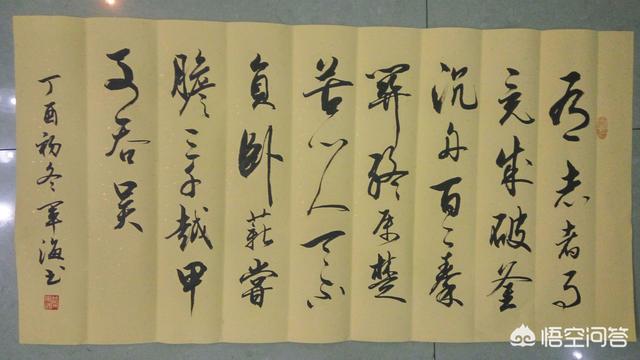 有志者事
竟成破釜
沉舟百二秦
關终属楚
苦心人天不
負卧薪嘗
膽三千越甲
可吞吴
丁酉初冬軍海书
悟空问答